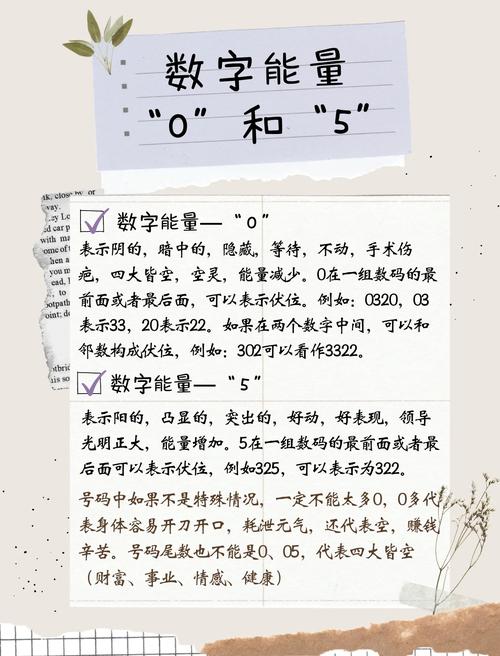 数字能量
“0” 和 “5”
数字能量—“0”
表示阴的，暗中的，隐藏，等待，不动，手术伤
疤，四大皆空，空灵，能量减少。0在一组数码的最
前面或者最后面，可以表示伏位。例如：0320，03
表示33，20表示22。如果在两个数字中间，可以和
邻数构成伏位，例如：302可以看作3322。
数字能量—“5”
表示阳的，凸显的，突出的，好动，好表现，领导
光明正大，能量增加。5在一组数码的最前面或者最
后面可以表示伏位，例如325，可以表示为322。
号码中如果不是特殊情况，一定不能太多0，0多代
表身体容易开刀开口，耗泄元气，还代表空，赚钱
辛苦。号码尾数也不能是0、05，代表四大皆空
（财富、事业、情感、健康）